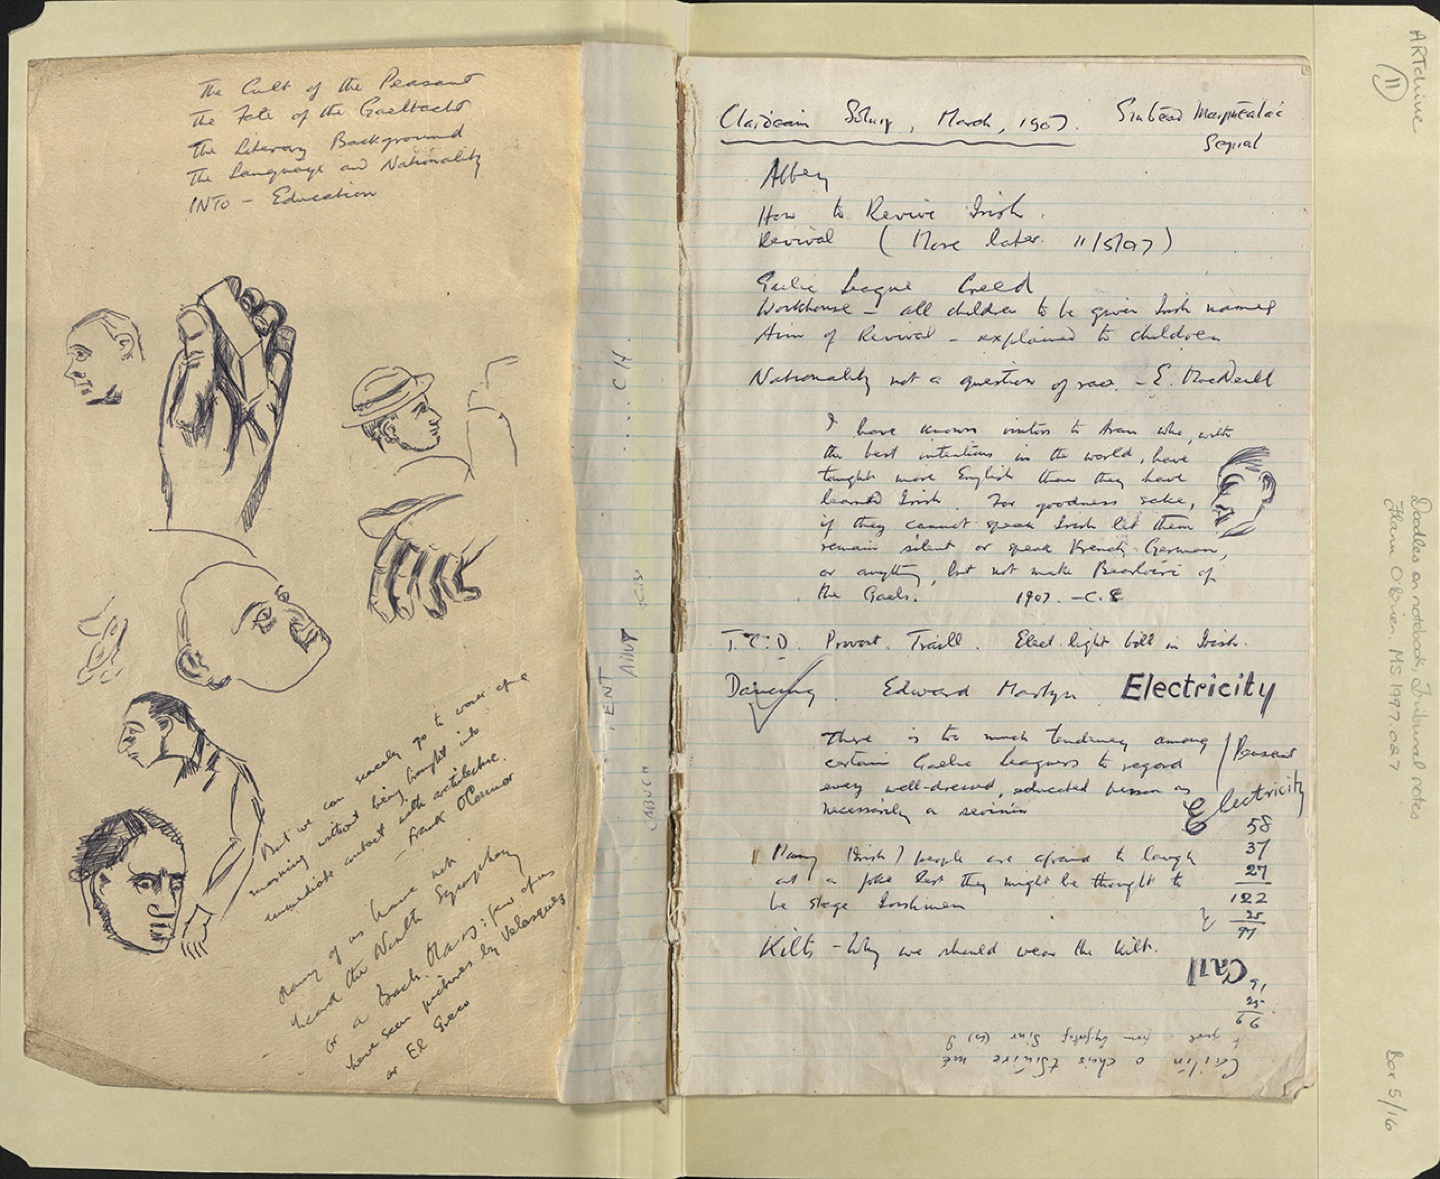 The Cult of the Peasant
The Fate of the Gaeltacht
The Literary Background
The Language and Nationality
INTO - Education
But we can scarcely go to work of a
morning without being brought into
immediate contact with architecture.
- Frank O'Connor
Many of us have not
heard the Ninth Symphony
or a Bach Mass: few of us
have seen pictures by Velasquez
or El Greco
C H
ENT
Claideam Soluis, March, 1907.
Serial
Abbey
How to Revive Irish.
Revival (More later 11/5/07)
Gaelic League Creed
Workhouse - all children to be given Irish names
Aim of Revival - explained to children
Nationality not a question of race. - E. MacNeill
I have known visitors to Aran who, with
the best intentions in the world, have
taught more English than they have
learned Irish. For goodness sake,
if they cannot speak Irish let them
remain silent or speak French, German,
or anything, but not make Beurloirí of
the Gaels. 1907. - C.S
T.C.D. Provost Traill. Elect. light bill in Irish.
Dancing. Edward Martyn Electricity
There is too much tendency among
certain Gaelic Leaguers to regard
every well-dressed, educated person as
necessarily a seoinín
Peasant
Electricity
58
37
27
122
25
97
Many Irish people are afraid to laugh
at a joke lest they might be thought to
be stage Irishmen
Kilts - Why we should wear the kilt.
Cail
91
25
66
Cailín ó chois tSiúire mé
ARTchive
11
Doodles on notebook, Tribunal notes
Flann O'Brien, MS.1997.027
Box 5/16